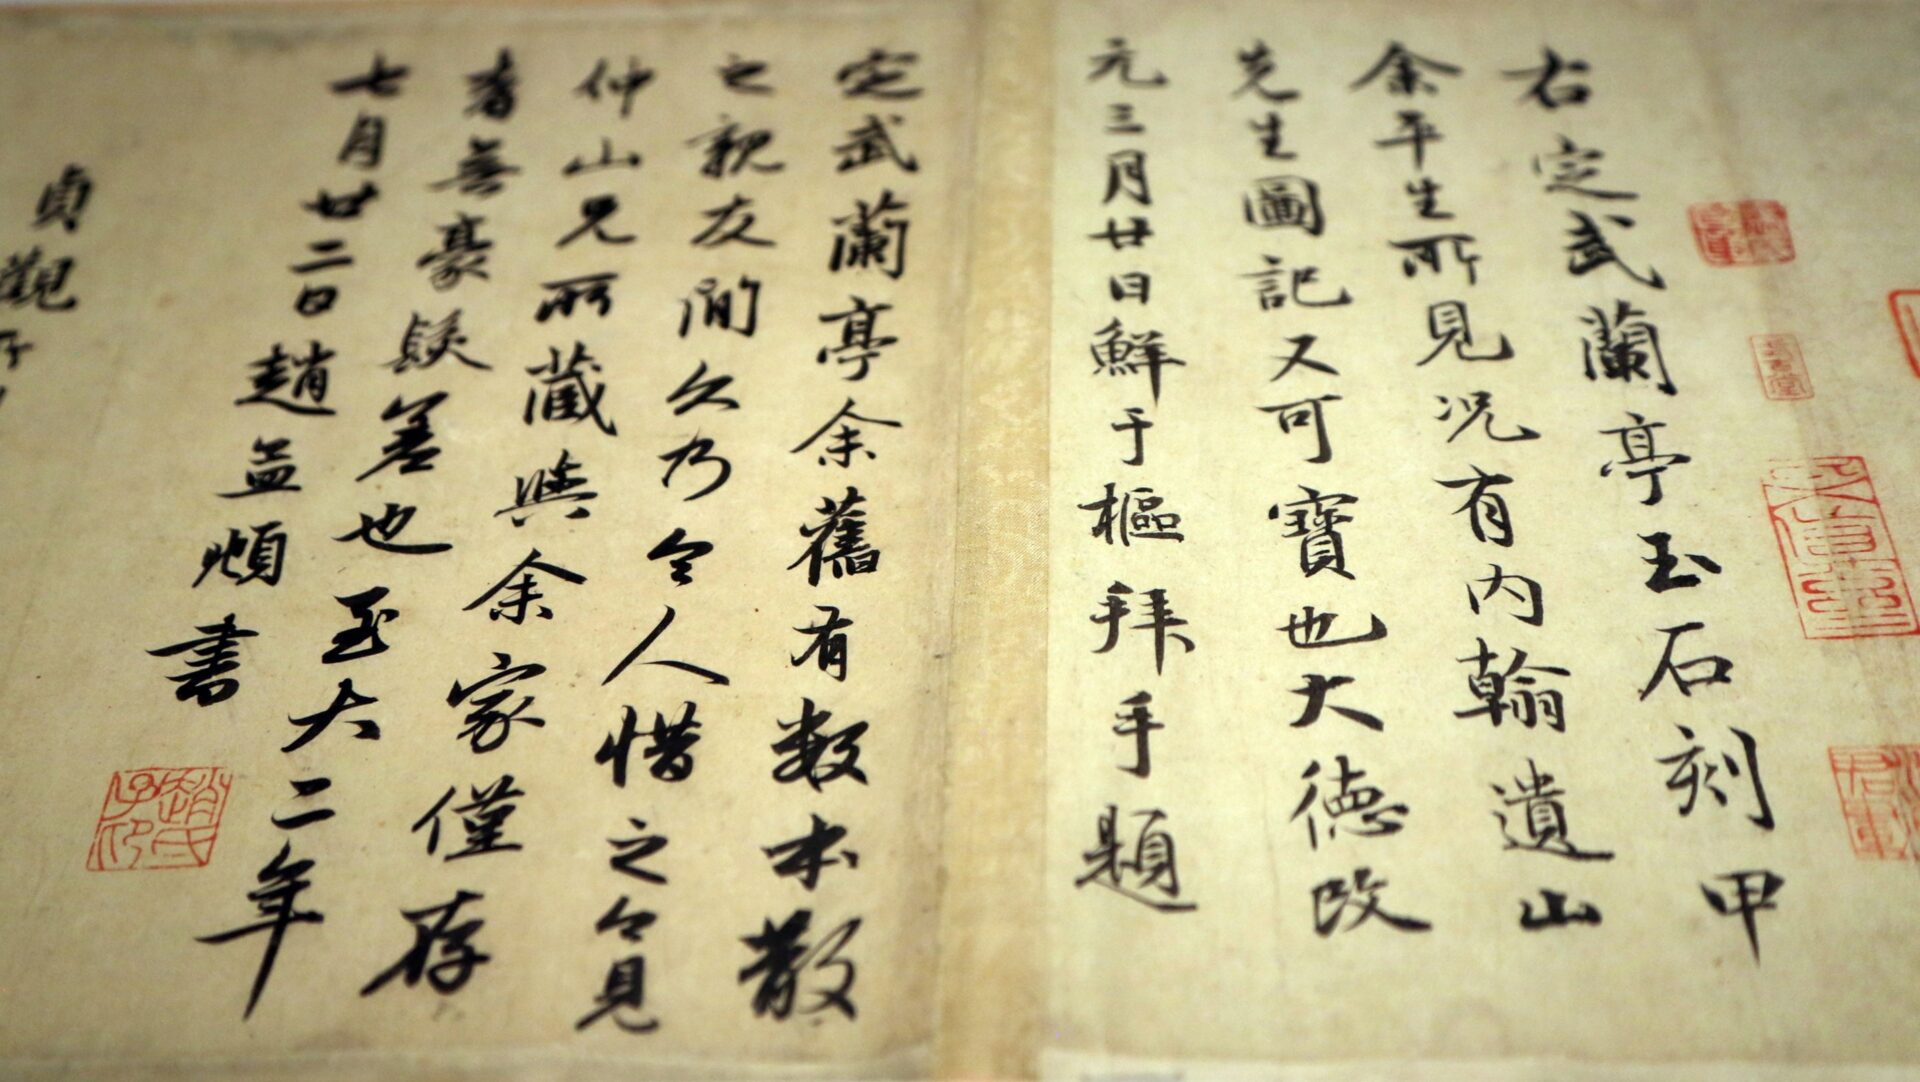 右定武蘭亭玉石刻甲
余平生所見況有内翰遺山
先生圖記又可寶也大德改
元三月廿日鮮于樞拜手題
定武蘭亭余舊有数本散
之親友間久乃令人惜之今見
仲山兄所藏與余家僅存
者無豪髮差也至大二年
七月廿二日趙孟頫書
貞觀